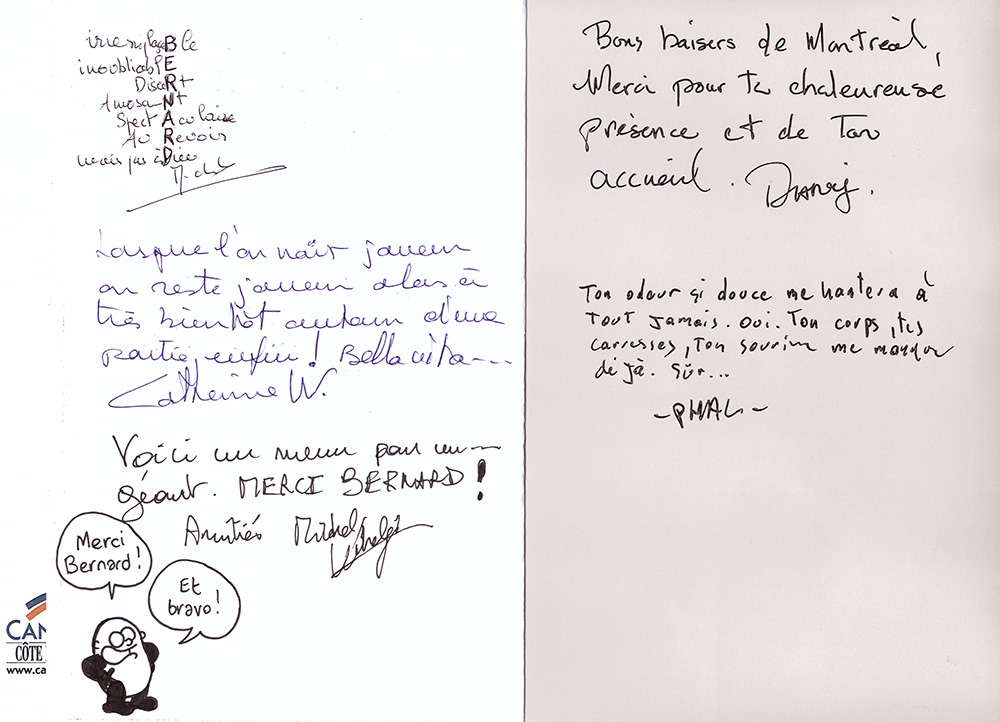 irremplaçaBle
inoubliablE
DiscRet
AmusaNt
SpectAculaire
Au Revoir
mais pas à Dieu
Lorsque l'on naît joueur
on reste joueur alors à
très bientôt autour d'une
partie, enfin ! Bella vita....
Catherine W.
Voici un menu pour un
géant. MERCI BERNARD !
Amitiés Michel
Merci
Bernard !
Et
bravo !
CAN
CÔTE
www.ca
Bons baisers de Montréal,
Merci pour ta chaleureuse
présence et de Ton
accueil.
Ton odeur si douce me hantera à
Tout jamais. Oui. Ton corps, tes
carresses, Ton sourire me manque
déjà. Sûr...